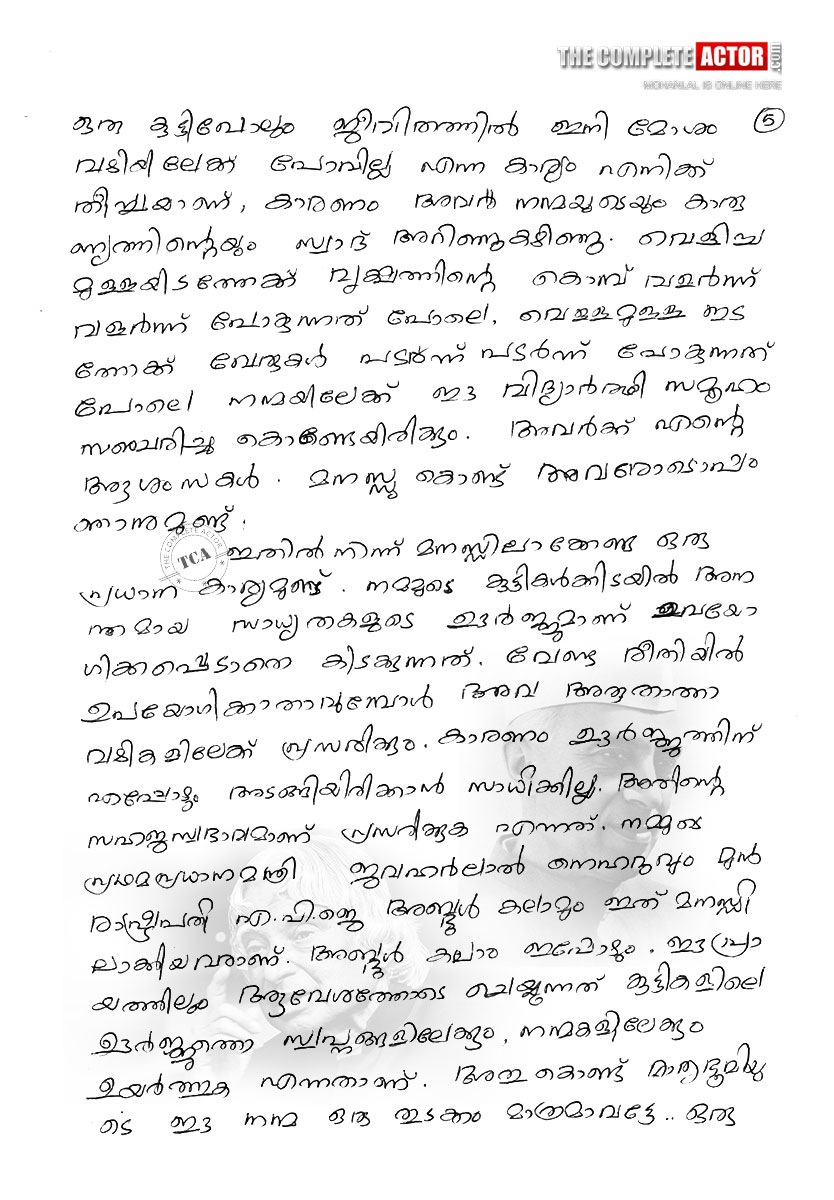 THE COMPLETE ACTOR .COM
MOHANLAL IS ONLINE HERE
ഒരു കുട്ടിപോലും ജീവിതത്തിൽ ഇനി മോശം 5
വഴിയിലേക്ക് പോവില്ല എന്ന കാര്യം എനിക്ക്
തീർച്ചയാണ്, കാരണം അവർ നന്മയുടെയും കാരു
ണ്യത്തിന്റെയും സ്വാദ് അറിഞ്ഞുകഴിഞ്ഞു. വെളിച്ച
മുള്ളയിടത്തേക്ക് വൃക്ഷത്തിന്റെ കൊമ്പ് വളർന്ന്
വളർന്ന് പോകുന്നത് പോലെ, വെള്ളമുള്ള ഇട
ത്തേക്ക് വേരുകൾ പടർന്ന് പടർന്ന് പോകുന്നത്
പോലെ നന്മയിലേക്ക് ഈ വിദ്യാർത്ഥി സമൂഹം
സഞ്ചരിച്ചു കൊണ്ടേയിരിക്കും. അവർക്ക് എന്റെ
ആശംസകൾ. മനസ്സു കൊണ്ട് അവരോടൊപ്പം
ഞാനുമുണ്ട്.
THE COMPLETE ACTOR TCA
ഇതിൽ നിന്ന് മനസ്സിലാക്കേണ്ട ഒരു
പ്രധാന കാര്യമുണ്ട്. നമ്മുടെ കുട്ടികൾക്കിടയിൽ അന
ന്തമായ സാധ്യതകളുടെ ഊർജ്ജമാണ് ഉപയോ
ഗിക്കപ്പെടാതെ കിടക്കുന്നത്. വേണ്ട രീതിയിൽ
ഉപയോഗിക്കാതാവുമ്പോൾ അവ അരുതാത്ത
വഴികളിലേക്ക് പ്രസരിക്കും. കാരണം ഊർജ്ജത്തിന്
എപ്പോഴും അടങ്ങിയിരിക്കാൻ സാധിക്കില്ല. അതിന്റെ
സഹജസ്വഭാവമാണ് പ്രസരിക്കുക എന്നത്. നമ്മുടെ
പ്രഥമപ്രധാനമന്ത്രി ജവഹർലാൽ നെഹറുവും മുൻ
രാഷ്ട്രപതി എ.പി.ജെ അബ്ദുൾ കലാമും ഇത് മനസ്സി
ലാക്കിയവരാണ്. അബ്ദുൾ കലാം ഇപ്പോഴും, ഈ പ്രാ
യത്തിലും ആവേശത്തോടെ ചെയ്യുന്നത് കുട്ടികളിലെ
ഊർജ്ജത്തെ സ്വപ്നങ്ങളിലേക്കും, നന്മകളിലേക്കും
ഉയർത്തുക എന്നതാണ്. അതു കൊണ്ട് മാതൃഭൂമിയു
ടെ ഈ നന്മ ഒരു തുടക്കം മാത്രമാവട്ടേ.. ഒരു